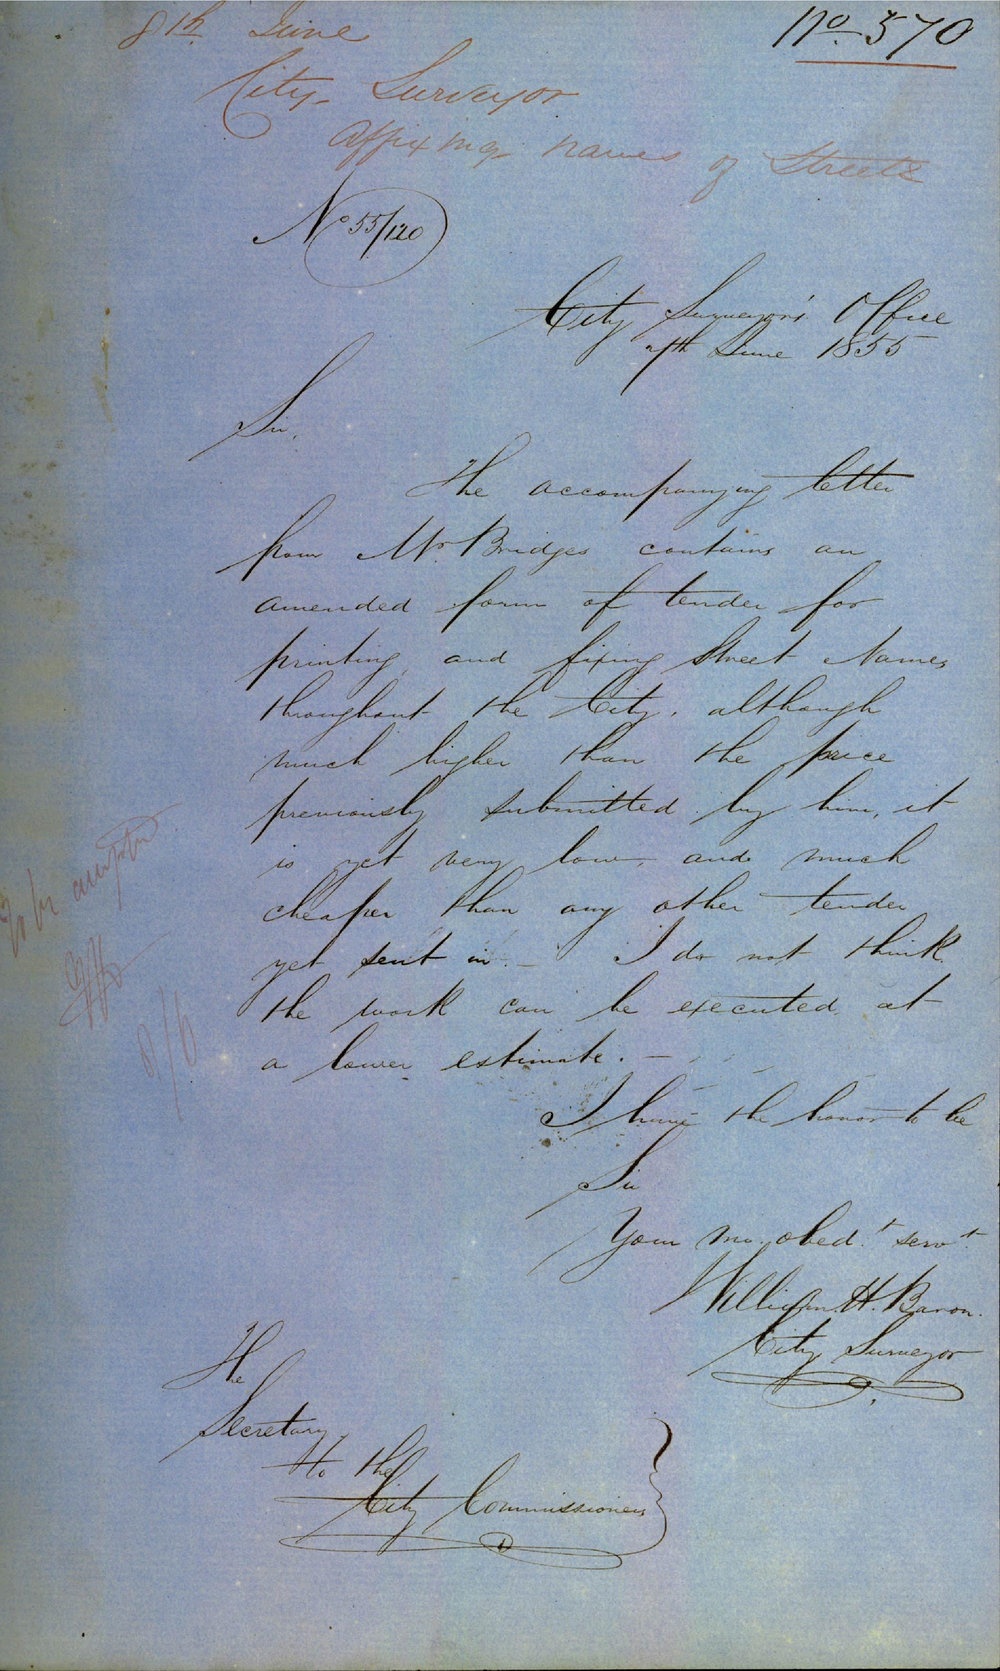 No 570
8th June
City Surveyor
Affixing names of Streets
No 55/120
City Surveyor's Office
7th June 1855
Sir,
The accompanying letter
from Mr Bridges contains an
amended form of tender for
printing and fixing Street Names
throughout the City, although
much higher than the price
previously submitted by him, it
is yet very low, and much
cheaper than any other tender
yet sent in. — I do not think
the work can be executed at
a lower estimate. —
I have the honor to be
Sir
Your mo. obed.t serv.t
William H. Baron.
City Surveyor
The
Secretary
to the
City Commissioners
To be accepted
8/6